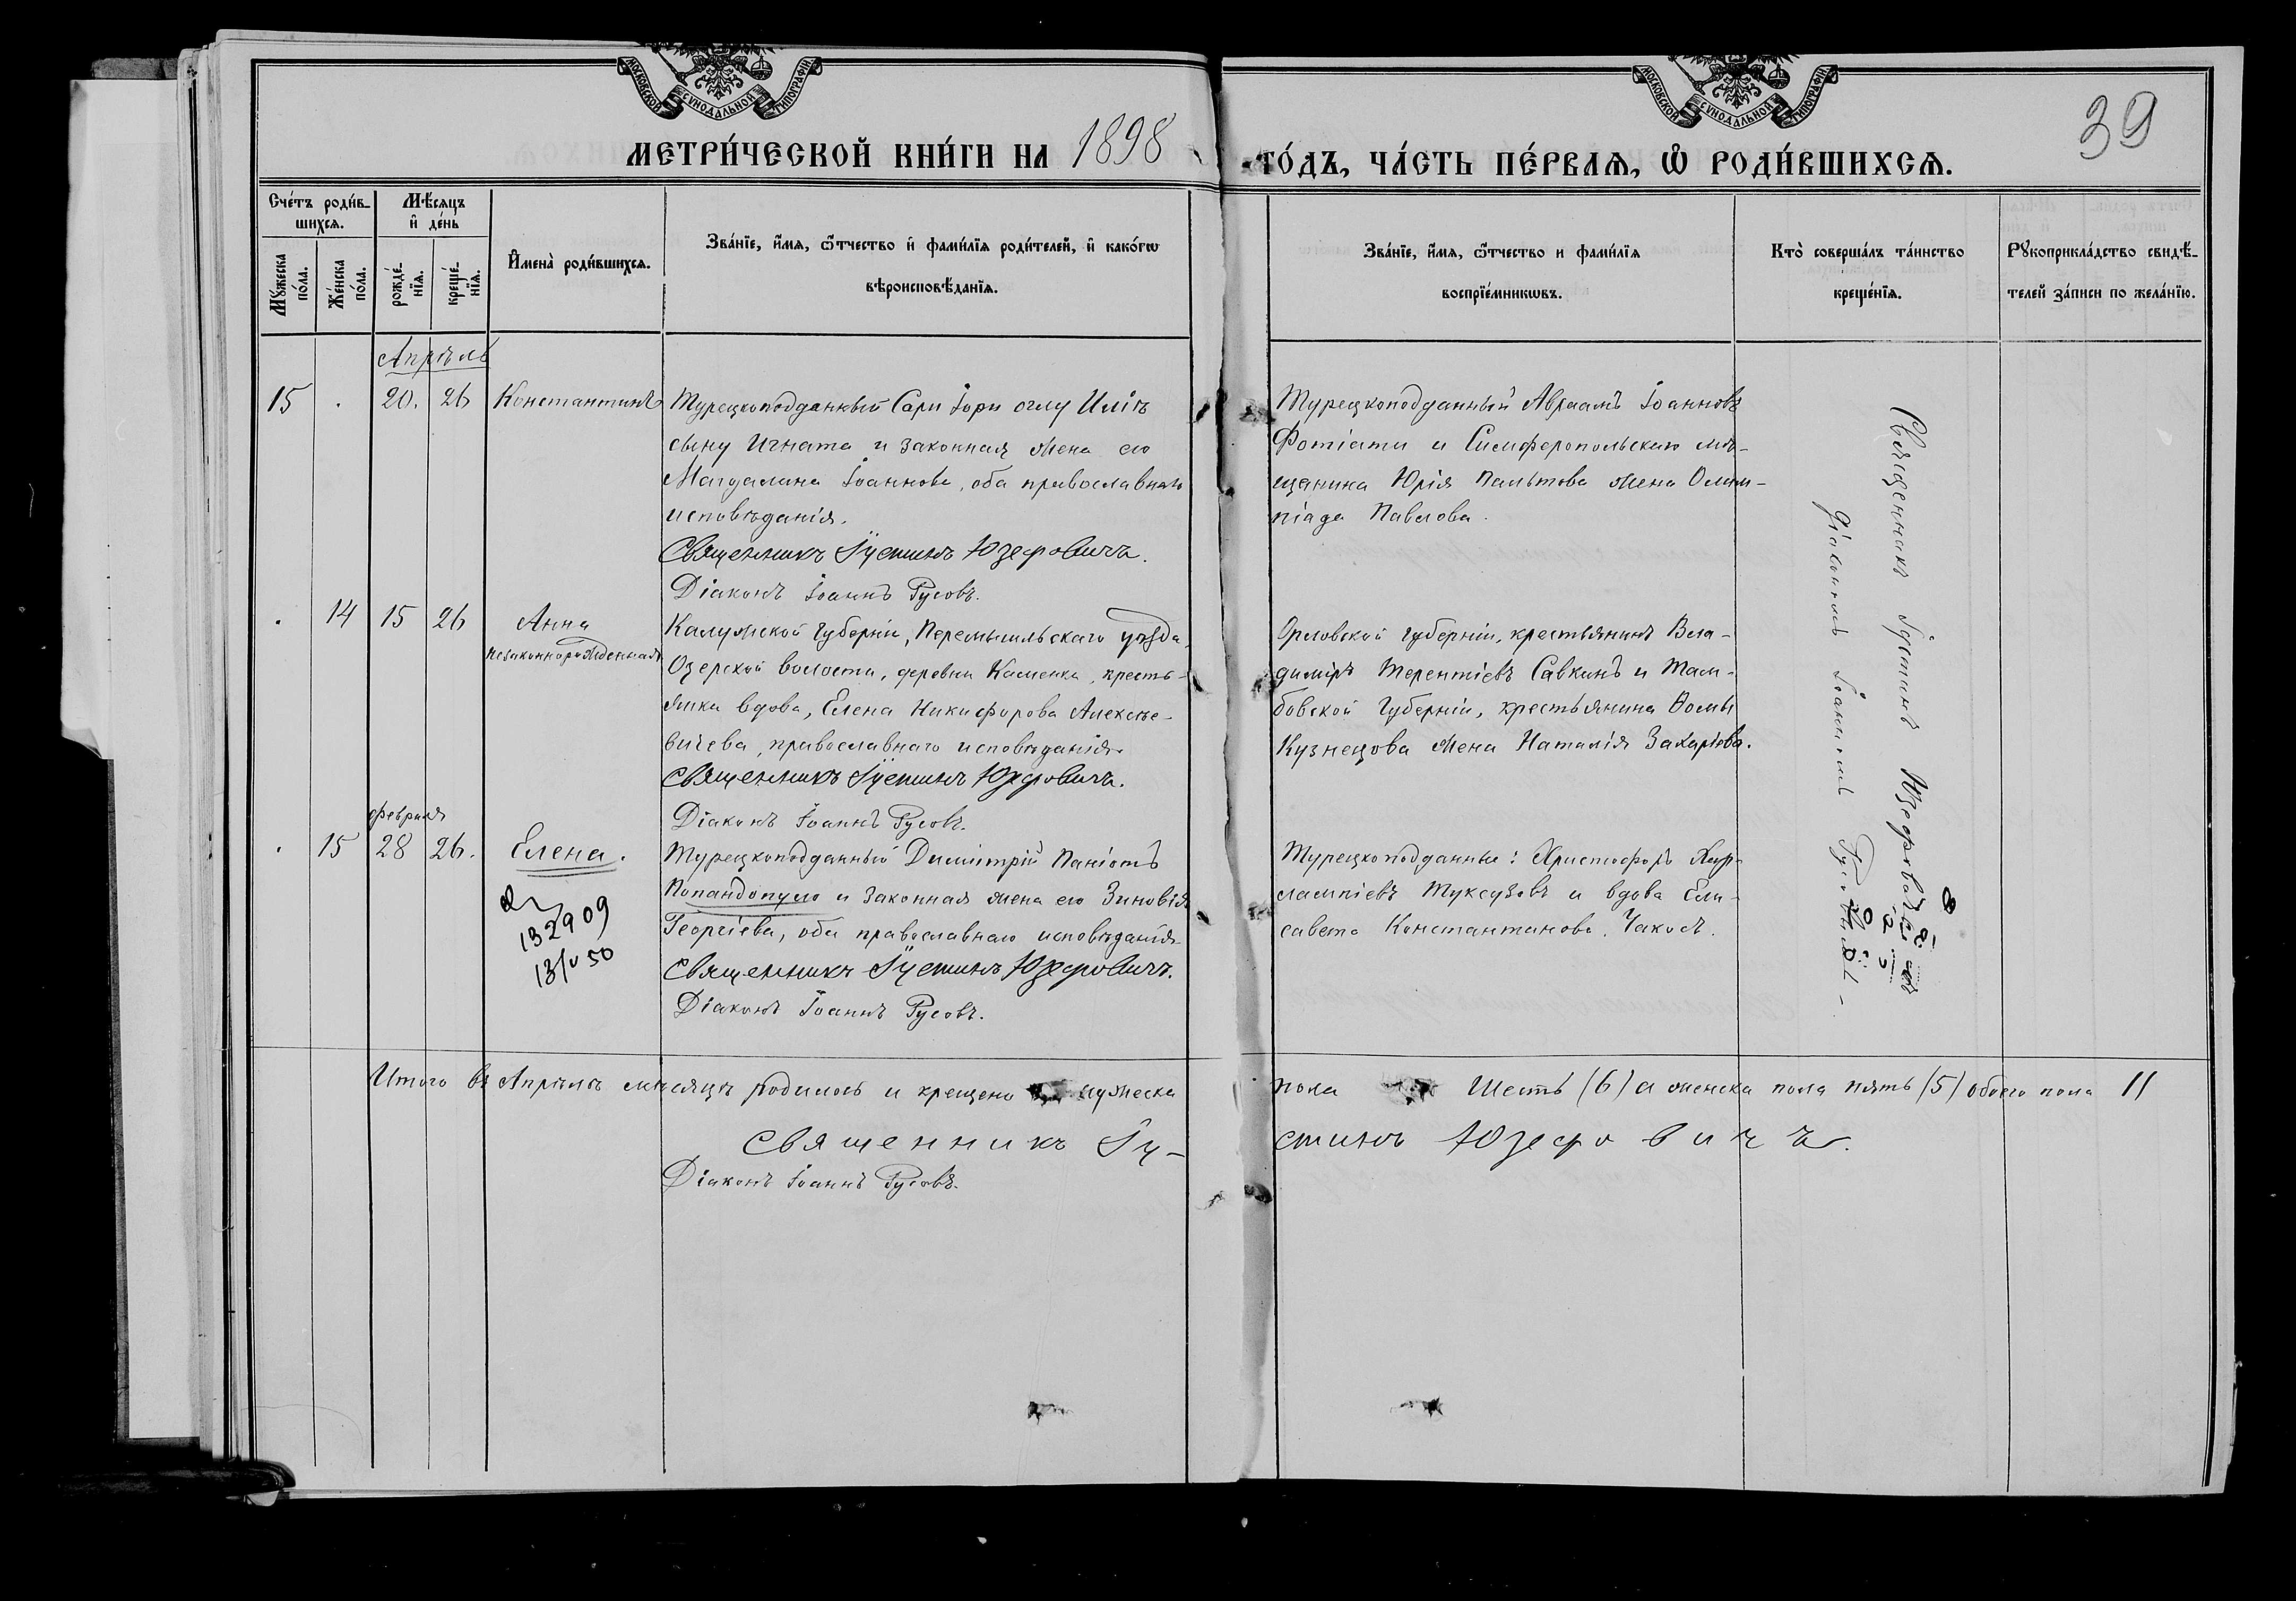 МОСКОВСКОЙ СУНОДАЛЬНОЙ ТИПОГРАФІИ
МОСКОВСКОЙ СУНОДАЛЬНОЙ ТИПОГРАФІИ
39
МЕТРИ́ЧЕСКОЙ КНИ́ГИ НА 1898
ГО́ДЪ, ЧА́СТЬ ПЕ́РВАѦ, Ѽ РОДИ́ВШИХСѦ.
Сче́тъ роди́в-
шихсѧ.
Мѣ́сѧцъ
и҆ де́нь
Мꙋ́жеска
по́ла.
Же́нска
по́ла.
рожде́-
нїѧ.
креще́-
нїѧ.
И҆мена̀ роди́вшихсѧ.
Зва́нїе, и҆́мѧ, ѻ҆́тчество и҆ фами́лїѧ роди́телей, и҆ како́гѡ
вѣроисповѣ́данїѧ.
Зва́нїе, и҆́мѧ, ѻ҆́тчество и фами́лїѧ
воспрїе́мникѡвъ.
Кто̀ соверша́лъ та́инство
креще́нїѧ.
Рꙋкоприкла́дство свидѣ́-
телей за́писи по жела́нїю.
Апрѣль
15 . 20. 26 Константинъ
Турецкоподданный Сари Іори оглу Иліѣ
сыну Игната и законная жена его
Магдалина Іоаннова, оба православнаго
исповѣданія.
Священникъ Іустинъ Юзефовичъ.
Діаконъ Іоаннъ Русовъ.
Турецкоподданный Авраамъ Іоанновъ
Фотіати и Симферопольскаго мѣ-
щанина Юрія Пальтова жена Олим-
піада Павлова.
. 14 15 26 Анна
незаконнорожденная
Калужской губерніи, Перемышльскаго уѣзда,
Озерской волости, деревни Каменки, кресть-
янка вдова, Елена Никифорова Алексѣе-
вичева, православнаго исповѣданія.
Священникъ Іустинъ Юзефовичъ.
Діаконъ Іоаннъ Русовъ.
Орловской губерніи, крестьянинъ Вла-
диміръ Терентіевъ Савкинъ и Там-
бовской губерніи, крестьянина Ѳомы
Кузнецова жена Наталія Захаріева.
февраля
. 15 28 26. Елена.
132909
13/V 50
Турецкоподданный Димитрій Паніотъ
Попандопуло и законная жена его Зиновія
Георгіева, оба православнаго исповѣданія
Священникъ Іустинъ Юзефовичъ.
Діаконъ Іоаннъ Русовъ.
Турецкоподданные: Христофоръ Хар-
лампіевъ Туксузовъ и вдова Ели-
савета Константинова Чакол.
Священникъ Іустинъ Юзефовичъ съ
діакономъ Іоанномъ Русовымъ.
Итого въ Апрѣлѣ мѣсяцѣ родилось и крещено мужеска
пола Шесть (6) а женска пола пять (5) обоего пола 11
Священникъ Іу-
стинъ Юзефовичъ.
Діаконъ Іоаннъ Русовъ.